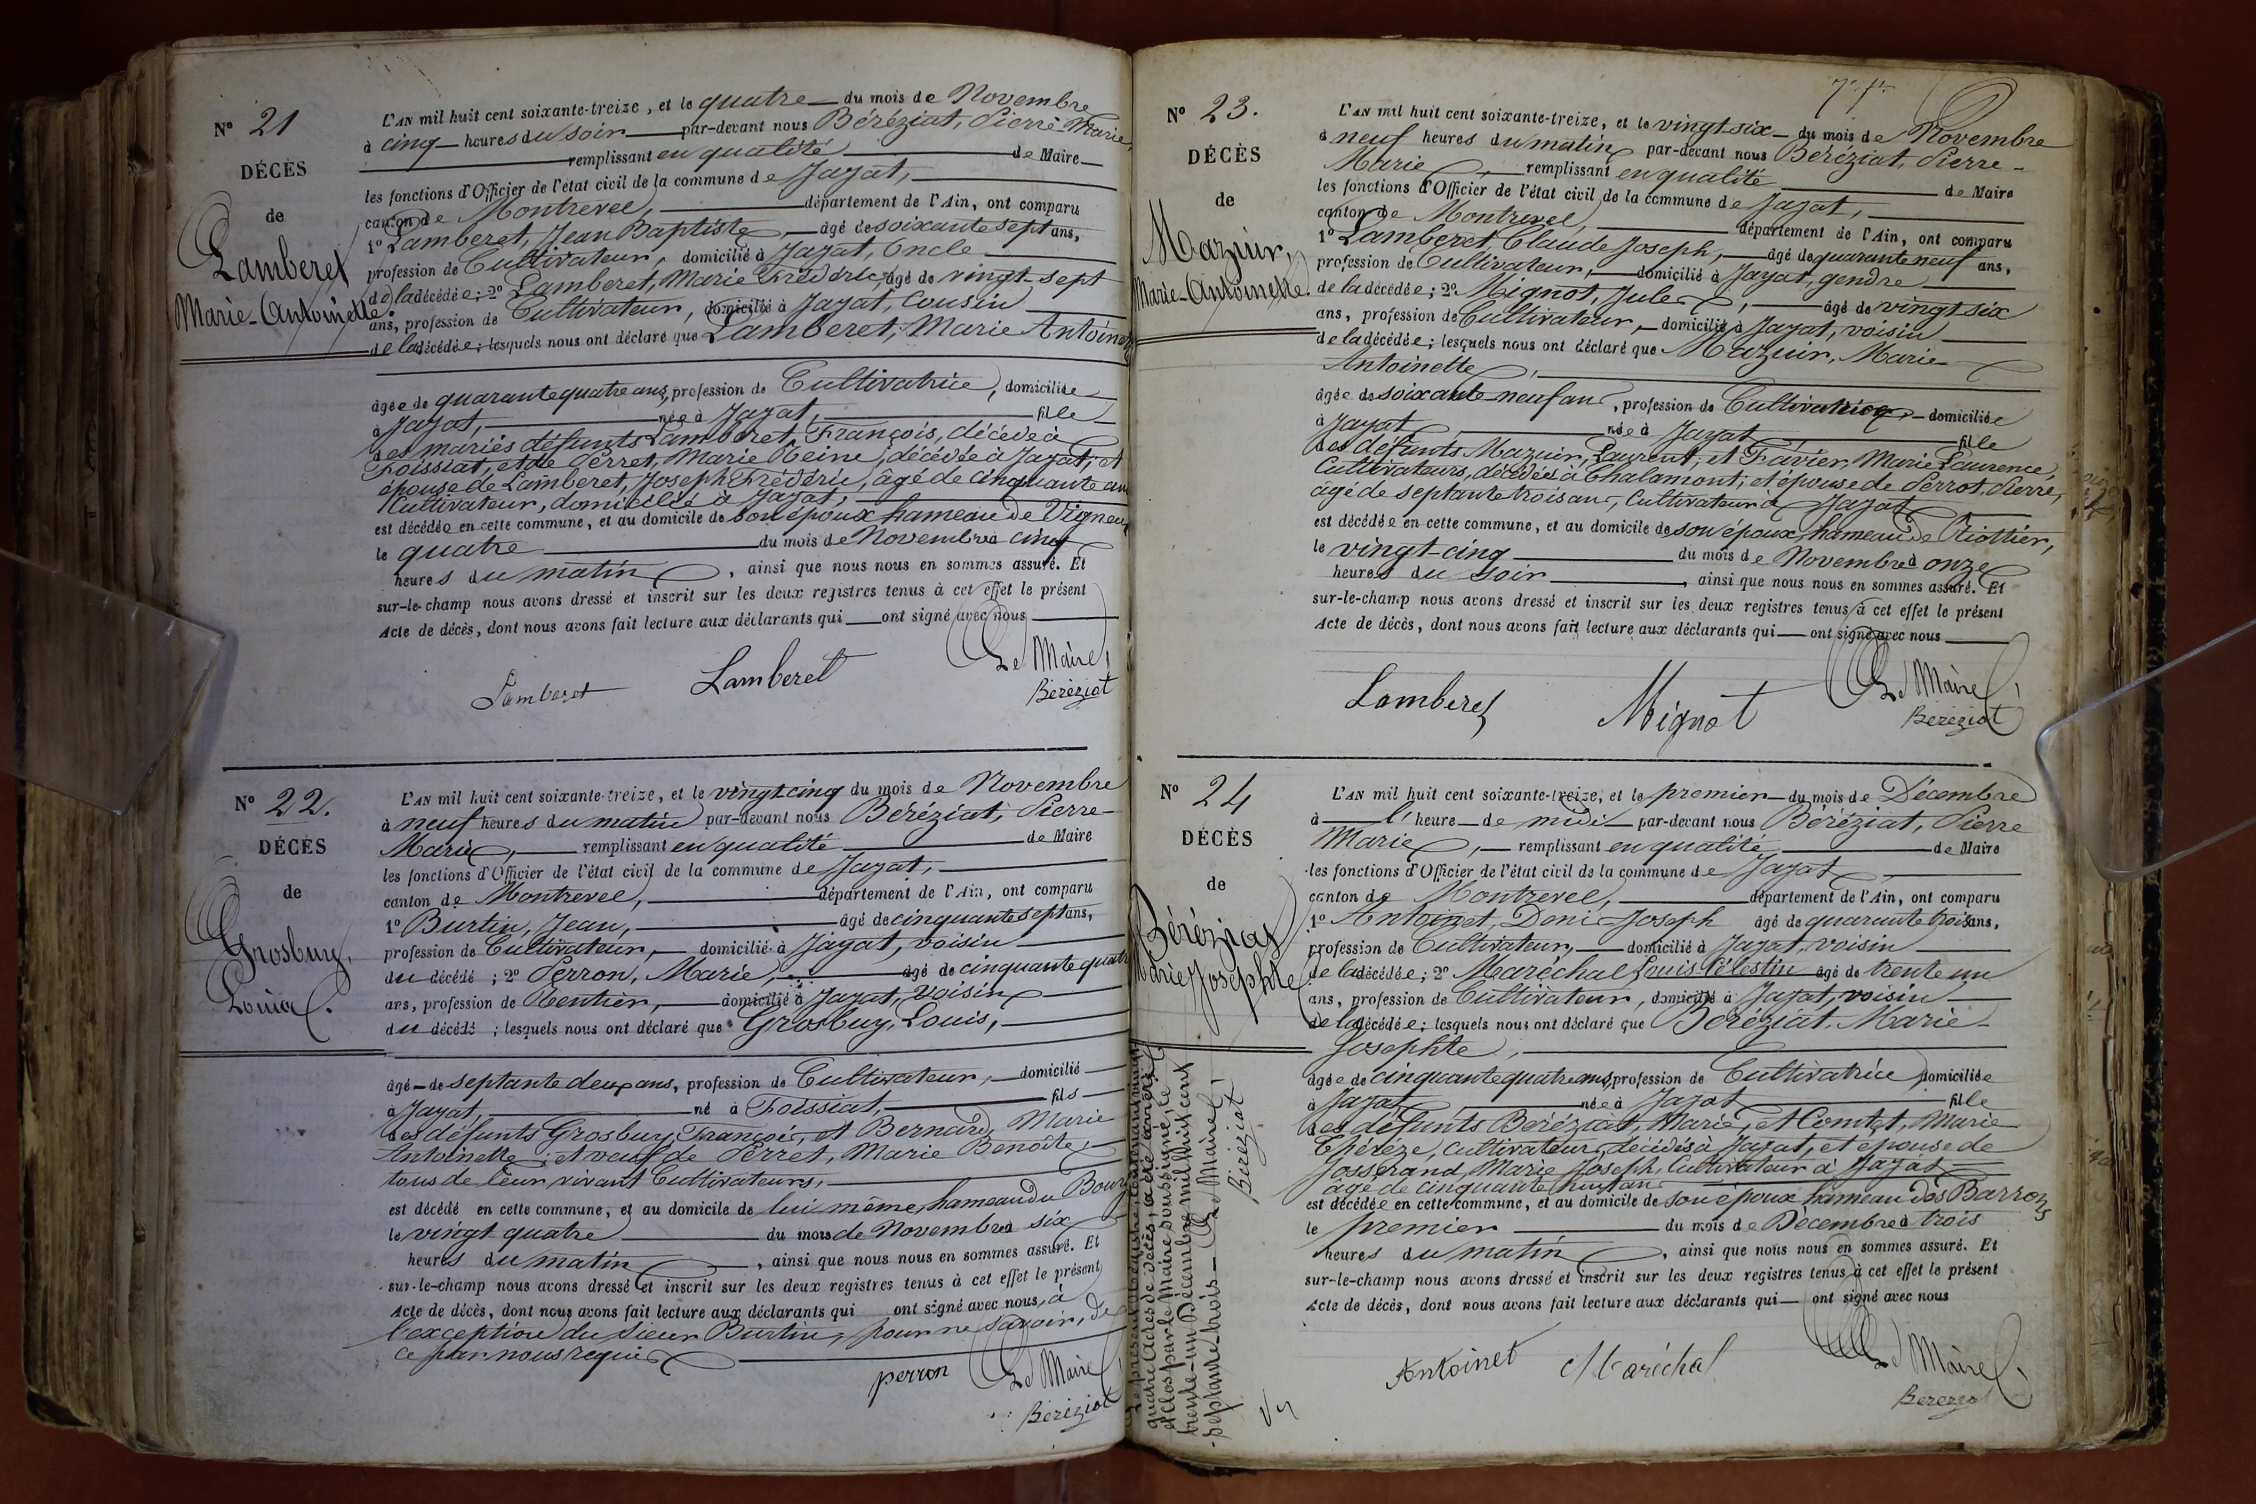 N° 21
DÉCÈS
de
Lamberet
Marie-Antoinette.
L'AN mil huit cent soixante-treize, et le quatre du mois de Novembre
à cinq heures du soir par-devant nous Béréziat, Pierre-Marie,
remplissant en qualité de Maire
les fonctions d'Officier de l'état civil de la commune de Jayat,
canton de Montrevel, département de l'Ain, ont comparu
1° Lamberet, Jean Baptiste, âgé de soixante sept ans,
profession de Cultivateur, domicilié à Jayat, Oncle
de la décédée; 2° Lamberet, Marie Frédéric, âgé de vingt-sept
ans, profession de Cultivateur, domicilié à Jayat, Cousin
de la décédée; lesquels nous ont déclaré que Lamberet, Marie Antoinette
âgée de quarante quatre ans, profession de Cultivatrice, domiciliée
à Jayat, née à Jayat, fille
des mariés défunts Lamberet, François, décédé à
Foissiat, et de Perret, Marie Reine, décédée à Jayat; et
épouse de Lamberet, Joseph Frédéric, âgé de cinquante ans
Cultivateur, domicilié à Jayat;
est décédée en cette commune, et au domicile de son époux hameau de Vigneux
le quatre du mois de Novembre à cinq
heures du matin, ainsi que nous nous en sommes assuré. Et
sur-le-champ nous avons dressé et inscrit sur les deux registres tenus à cet effet le présent
Acte de décès, dont nous avons fait lecture aux déclarants qui ont signé avec nous
Lamberet Lamberet Le Maire,
Béréziat
N° 22.
DÉCÈS
de
Grosbuy,
Louis.
L'AN mil huit cent soixante-treize, et le vingt-cinq du mois de Novembre
à neuf heures du matin par-devant nous Béréziat, Pierre-
Marie, remplissant en qualité de Maire
les fonctions d'Officier de l'état civil de la commune de Jayat,
canton de Montrevel, département de l'Ain, ont comparu
1° Burtin, Jean, âgé de cinquante sept ans,
profession de Cultivateur, domicilié à Jayat, voisin
du décédé; 2° Perron, Marie, âgé de cinquante quatre
ans, profession de Rentier, domicilié à Jayat, Voisin
du décédé; lesquels nous ont déclaré que Grosbuy, Louis,
âgé de septante deux ans, profession de Cultivateur, domicilié
à Jayat, né à Foissiat, fils
des défunts Grosbuy, François, et Bernard, Marie
Antoinette; et veuf de Perret, Marie Benoîte;
tous de leur vivant Cultivateurs,
est décédé en cette commune, et au domicile de lui même, hameau du Bourg
le vingt quatre du mois de Novembre à six
heures du matin, ainsi que nous nous en sommes assuré. Et
sur-le-champ nous avons dressé et inscrit sur les deux registres tenus à cet effet le présent
Acte de décès, dont nous avons fait lecture aux déclarants qui ont signé avec nous, à
l'exception du sieur Burtin, pour ne savoir, de
ce par nous requis
perron Le Maire,
Béréziat
N° 23.
DÉCÈS
de
Mazuir,
Marie-Antoinette.
L'AN mil huit cent soixante-treize, et le vingt-six du mois de Novembre
à neuf heures du matin par-devant nous Béréziat, Pierre-
Marie, remplissant en qualité de Maire
les fonctions d'Officier de l'état civil de la commune de Jayat,
canton de Montrevel, département de l'Ain, ont comparu
1° Lamberet, Claude Joseph, âgé de quarante neuf ans,
profession de Cultivateur, domicilié à Jayat, gendre
de la décédée; 2° Mignot, Jules, âgé de vingt six
ans, profession de Cultivateur, domicilié à Jayat, voisin
de la décédée; lesquels nous ont déclaré que Mazuir, Marie
Antoinette,
âgée de soixante-neuf ans, profession de Cultivatrice, domiciliée
à Jayat née à Jayat fille
des défunts Mazuir, Laurent, et Favier, Marie Laurence,
Cultivateurs, décédés à Chalamont; et épouse de Perrot, Pierre,
âgé de septante trois ans, Cultivateur à Jayat
est décédée en cette commune, et au domicile de son époux, hameau de Riottier,
le vingt-cinq du mois de Novembre à onze
heures du soir, ainsi que nous nous en sommes assuré. Et
sur-le-champ nous avons dressé et inscrit sur les deux registres tenus à cet effet le présent
Acte de décès, dont nous avons fait lecture aux déclarants qui ont signé avec nous
Lamberet Mignot Le Maire,
Béréziat
N° 24
DÉCÈS
de
Béréziat
Marie Josephte.
L'AN mil huit cent soixante-treize, et le premier du mois de Décembre
à l'heure de midi par-devant nous Béréziat, Pierre
Marie, remplissant en qualité de Maire
les fonctions d'Officier de l'état civil de la commune de Jayat
canton de Montrevel, département de l'Ain, ont comparu
1° Antoinet, Denis Joseph âgé de quarante trois ans,
profession de Cultivateur, domicilié à Jayat, voisin
de la décédée; 2° Maréchal, Louis Célestin âgé de trente un
ans, profession de Cultivateur, domicilié à Jayat, voisin
de la décédée; lesquels nous ont déclaré que Béréziat, Marie-
Josephte,
âgée de cinquante quatre ans, profession de Cultivatrice, domiciliée
à Jayat née à Jayat fille
des défunts Béréziat, Marie, et Comtet, Marie
Thérèze, cultivateurs, décédés à Jayat, et épouse de
Josserand, Marie Joseph, Cultivateur à Jayat
âgé de cinquante huit ans
est décédée en cette commune, et au domicile de son époux, hameau des Barrons
le premier du mois de Décembre à trois
heures du matin, ainsi que nous nous en sommes assuré. Et
sur-le-champ nous avons dressé et inscrit sur les deux registres tenus à cet effet le présent
Acte de décès, dont nous avons fait lecture aux déclarants qui ont signé avec nous
Antoinet Maréchal Le Maire,
Béréziat
quatre actes de décès, a été
et clos par le Maire soussigné, le
trente-un Décembre mil huit cent
septante-trois Le Maire,
Béréziat